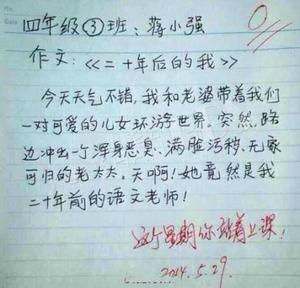 四年级③班：蒋小强
0
作文：<<二十年后的我>>
今天天气不错，我和老婆带着我们
一对可爱的儿女环游世界。突然，路
边冲出一个浑身恶臭、满脏污秽、无家
可归的老太太。天啊！她竟然是我
二十年前的语文老师！
这个星期你站着上课！
2014.5.29.